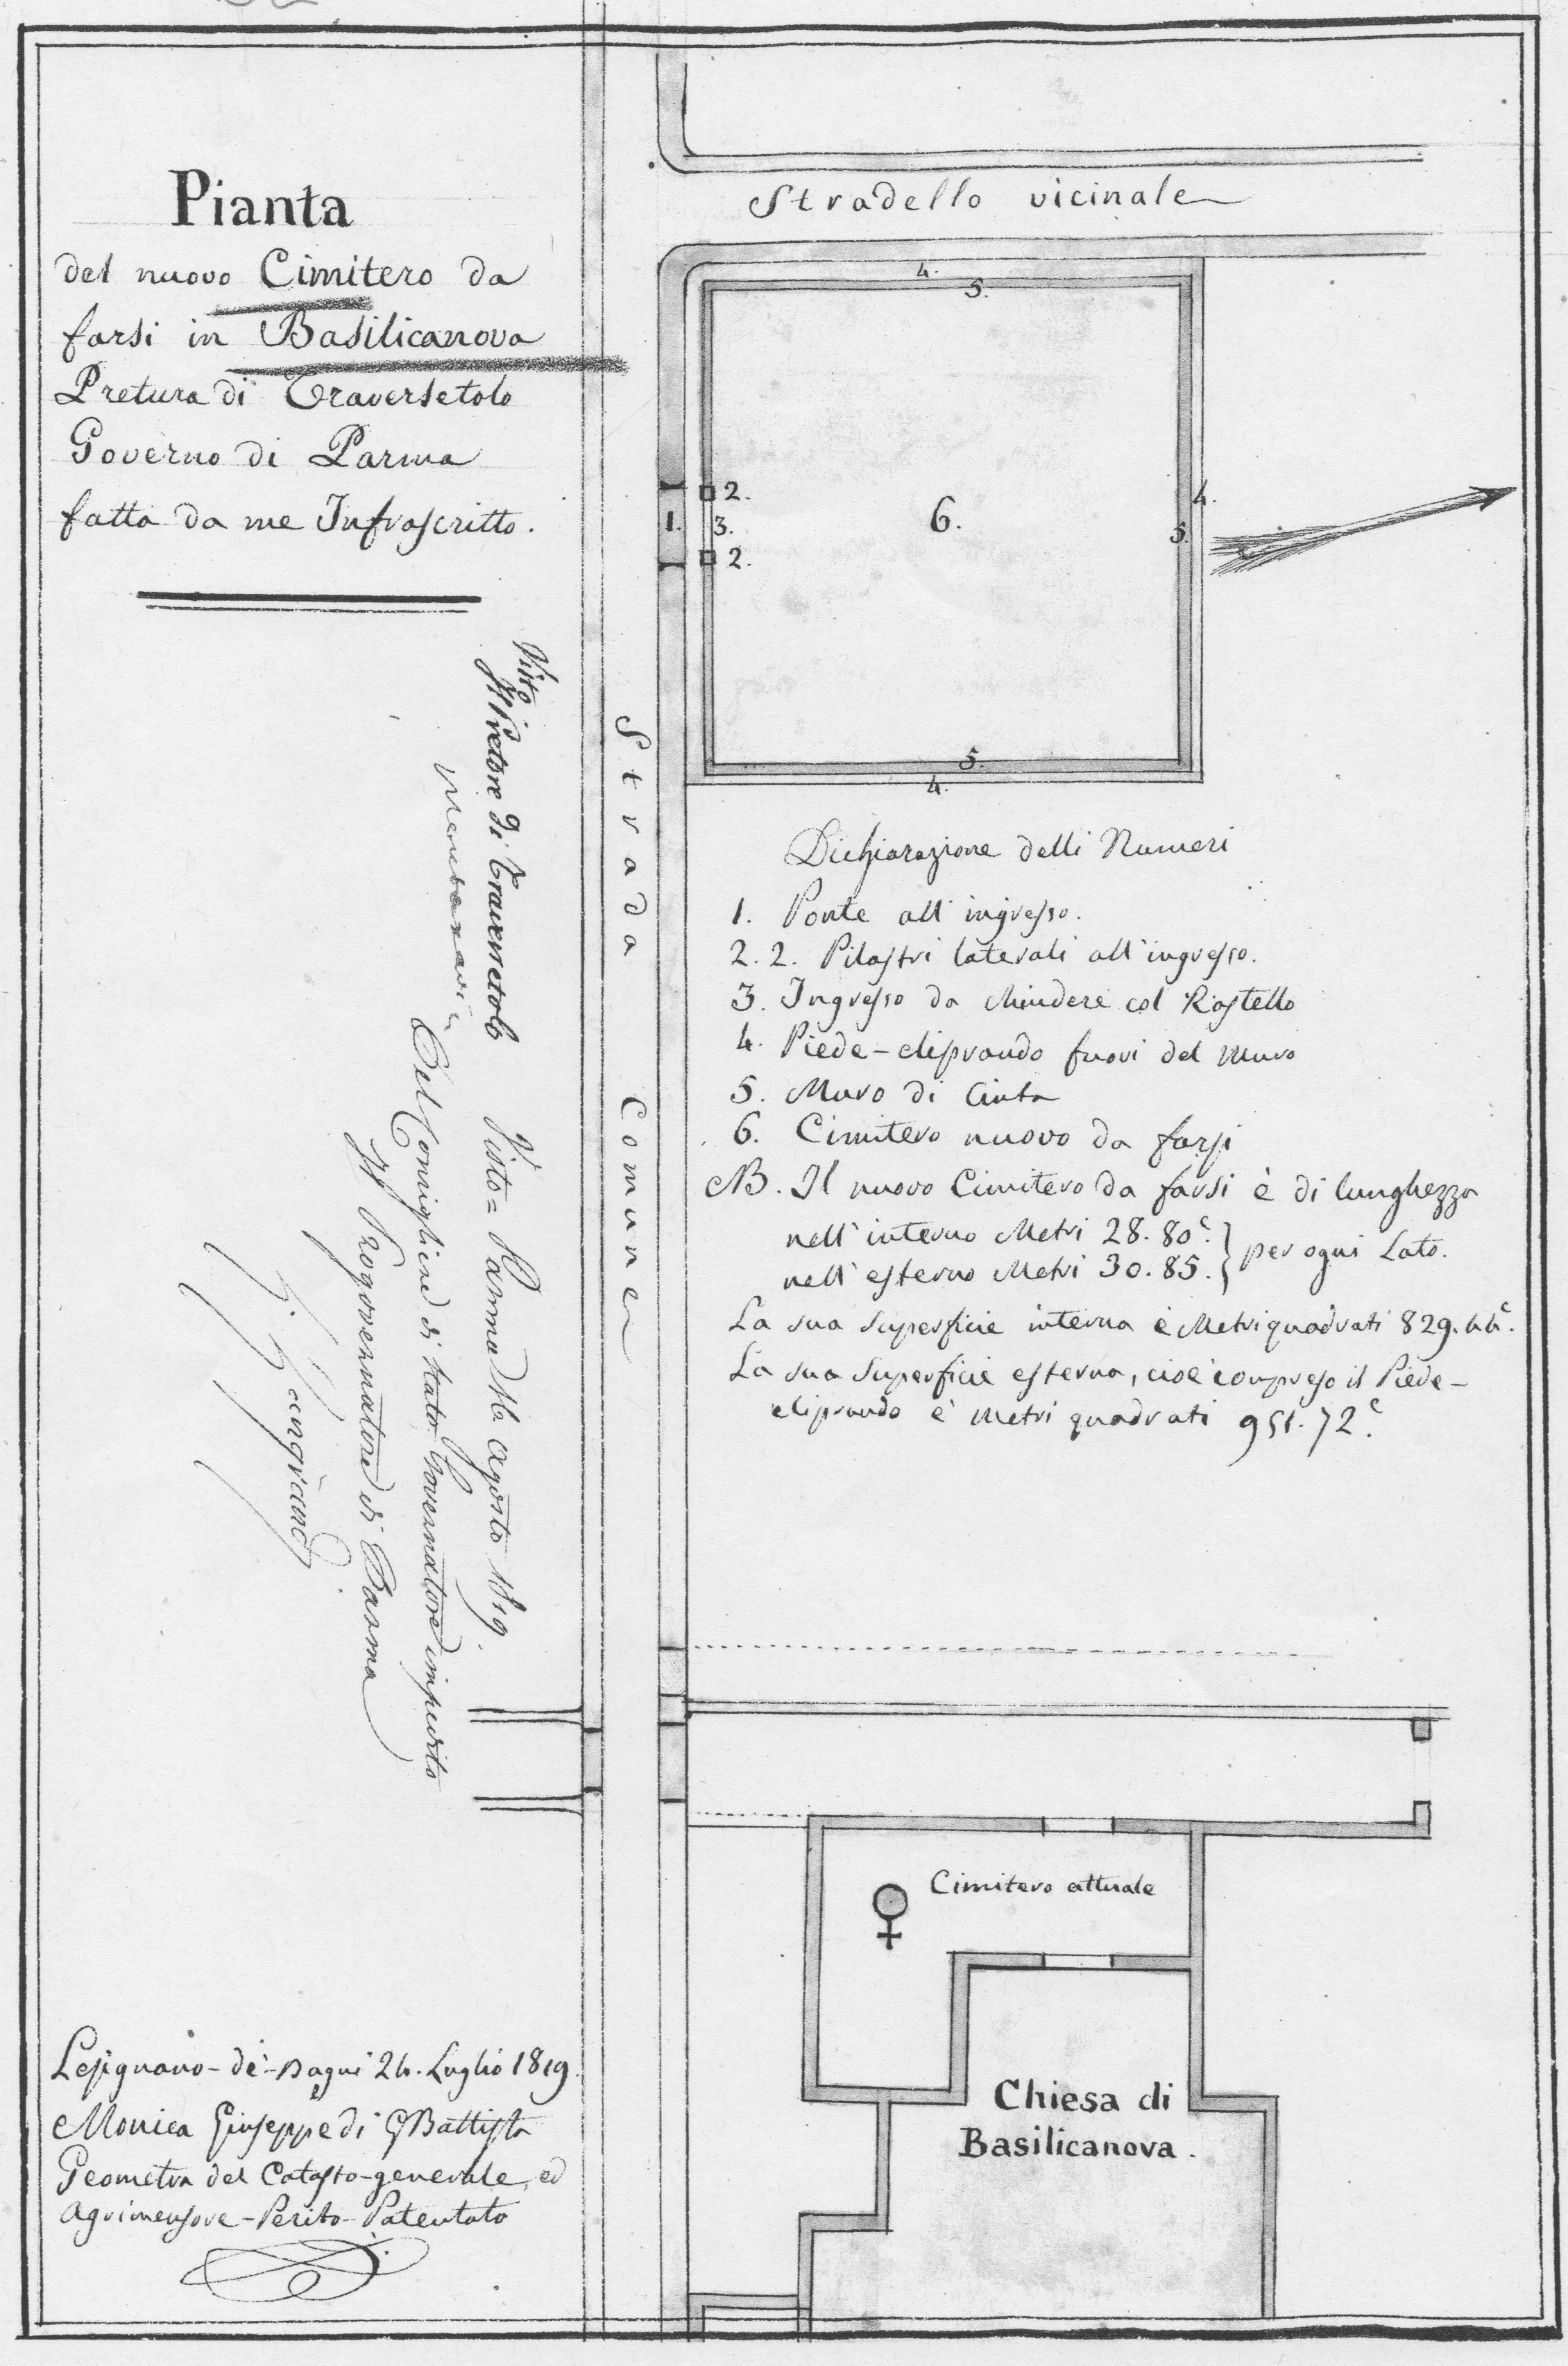 Pianta
del nuovo Cimitero da
farsi in Basilicanova
Pretura di Traversetolo
Governo di Parma
fatta da me Infrascritto.
Stradello vicinale
4.
5.
2.
1. 3.
2.
6.
4.
5.
5.
4.
Strada Comune
Visto
Il Pretore di Traversetolo
Visto = Parma 16 Agosto 1819.
Del Consigliere di Stato Governatore impedito
Il Progovernatore di Parma
Dichiarazione delli Numeri
1. Ponte all'ingresso.
2. 2. Pilastri laterali all'ingresso.
3. Ingresso da chiudere col Rastello
4. Piede-cliprando fuori del Muro
5. Muro di Cinta
6. Cimitero nuovo da farsi
NB. Il nuovo Cimitero da farsi è di lunghezza
nell'interno Metri 28.80.c
nell'esterno Metri 30.85. } per ogni Lato.
La sua Superficie interna è Metri quadrati 829.44c.
La sua Superficie esterna, cioè compreso il Piede-
cliprando è Metri quadrati 951.72.c
Cimitero attuale
Chiesa di
Basilicanova.
Lesignano-de'-Bagni 24. Luglio 1819.
Monica Giuseppe di GBattista
Geometra del Catasto-generale, ed
Agrimensore-Perito-Patentato